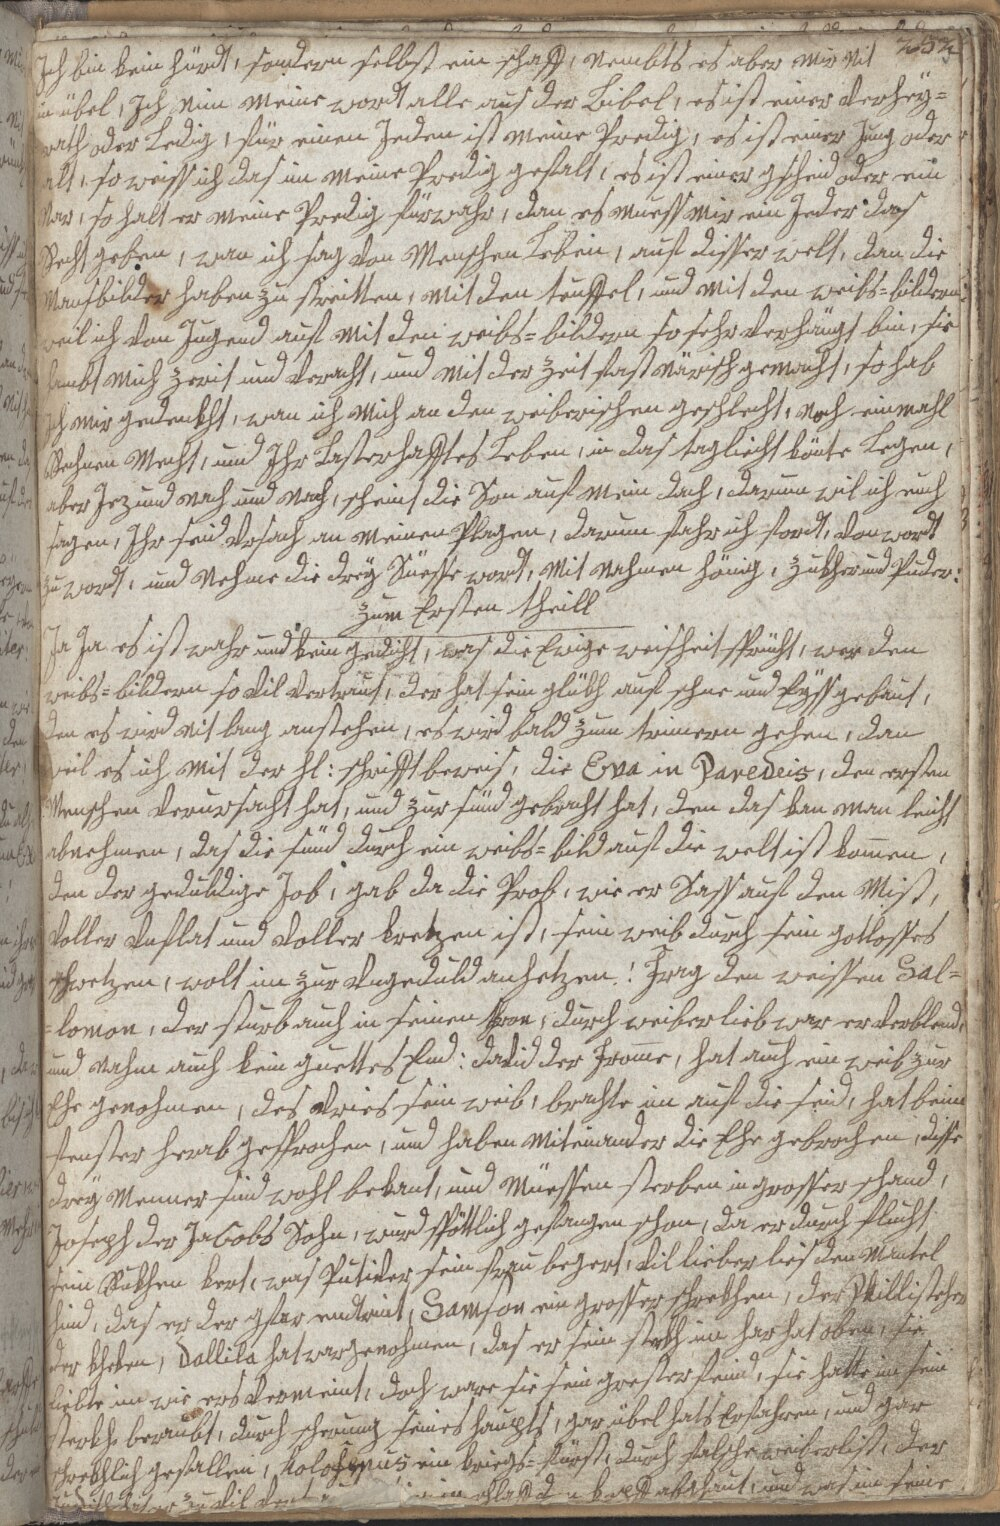 252
Ich bin kein hürdt, sondern selbst ein schaff, nembts es aber mir nit
in übel, Ich nim meine wordt alle aus der Bibel, es ist einer verhey=
rath oder Ledig, für einen Jeden ist meine Predig, es ist einer Jung oder
alt, so weiss ich das im meine Predig gefalt, es ist einer gscheid oder ein
Nar, so halt er meine Predig fürwahr, dan es muess mir ein Jeder das
Recht geben, wan ich sag von Menschen Leben, auf disser welt, dan die
Mansbilder haben zu streitten, mit den teuffel, und mit den weibs=bildern
weil ich von Jugend auf mit den weibs=bildern so sehr verhängt bin, sie
mich und veracht, und mit der Zeit fast närisch gemacht, so hab
Ich mir gedenckht, wan ich mich an den weiberischen geschlecht, noch einmahl
Rechnen mecht, und Ihr Lasterhafftes Leben, in das tagliecht könte Legen,
aber Jezund nach und nach, scheint die Son auf mein dach, darum wil ich euch
sagen, Ihr seid ursach an meinen Plagen, darum fahr ich fordt, von wordt
zu wordt, und Nehme die drey Süesse wordt, mit nahmen hönig, Zukher und Puder:
Zum Ersten theill
Ja Ja es ist wahr und kein gedicht, was die Ewige weisheit spricht, wer den
weibs=bildern so vil vertraut, der hat sein glükh auf schne und Eyss gebaut,
den es wird nit lang anstehen, es wird bald zum trimern gehen, dan
weil es ich mit der hl: schrifft beweis, die Eva in Paredeis, den ersten
Menschen verursacht hat, und zur sünd gebracht hat, den das kan man leicht
abnehmen, das die sünd durch ein weibs=bild auf die welt ist komen,
den der geduldige Job, gab da die Prob, wie er Sass auf den Mist,
Voller Unflat und voller kretzen ist, sein weib durch sein gotlosses
schwetzen, wolt im zur Ungeduld anhetzen! Frag den weissen Sal=
=lomon, der sturb auch in seinen tron, durch weiberlieb war er verblend,
und nahm auch kein guettes End: david der Frome, hat auch ein weib zur
Ehe genohmen, des Uries sein weib, brachte im auf die seid, hat beim
fenster herab gesprochen, und haben miteinander die Ehe gebrochen, disse
drey Menner sind wohl bekant, und müessen sterben in grosser schand,
Joseph der Jacobs Sohn, wurd spötlich gefangen schon, da er durch flucht
sein Rukhen kert, was Putiver sein frau begert, vil lieber lies den Mantel
hind, das er der gfar entrint, Samson ein grosser schrekhen, der Phillisteher
der kheken, Dallila hat wargenohmen, das er sein sterkh im har hat oben, sie
liebte im wie ers vermeint, doch ware sie sein grester feind, sie hatte im sein
sterkh beraubt, durch scherung seines haupts, gar übel hats Erfahren, und gar
schrekhlich gefallen, Holofernus ein kriegs=fürst, durch falsche weiberlist, der
zu vil schlaff kopff abhaut, und was im seine